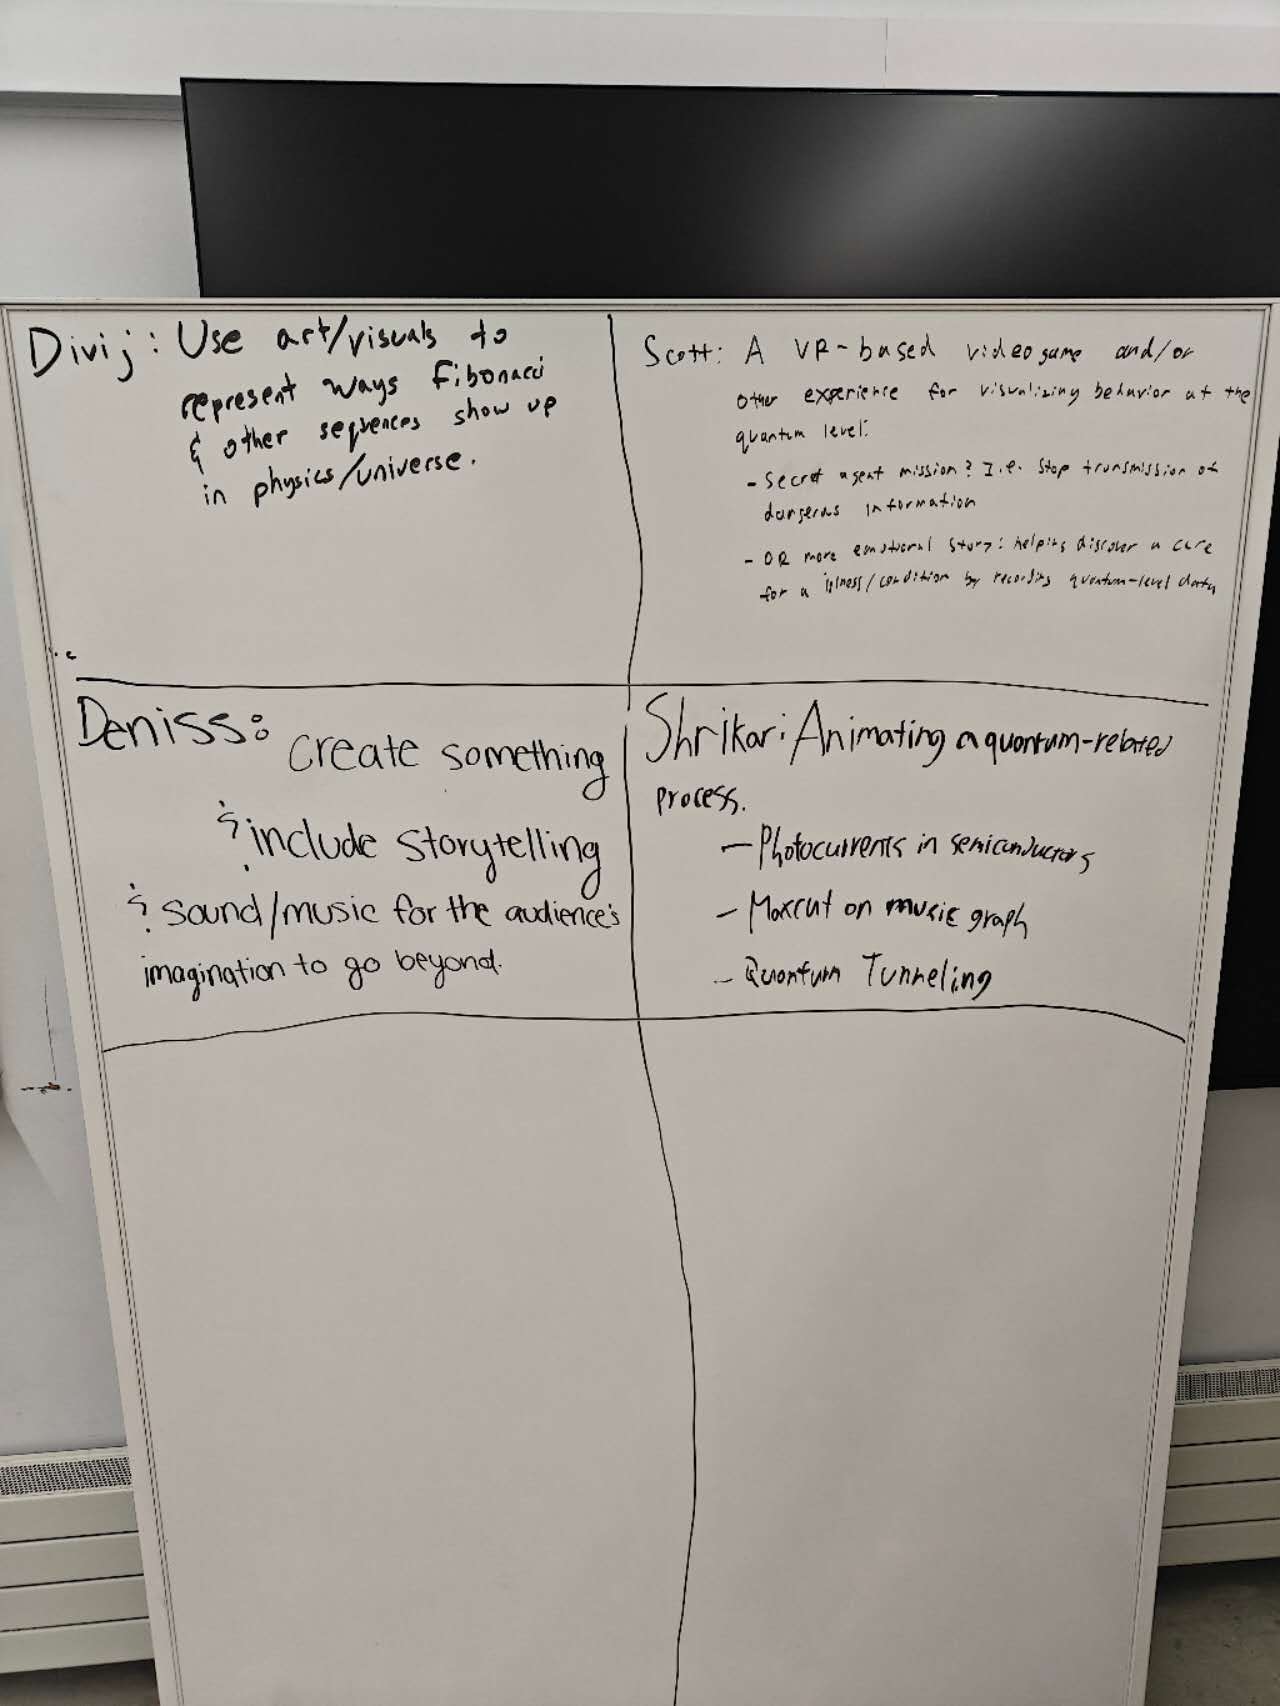 Divij: Use art/visuals to
represent ways Fibonacci
& other sequences show up
in physics/universe.
Scott: A VR-based videogame and/or
other experience for visualizing behavior at the
quantum level:
- Secret agent mission? I.e. Stop transmission of
dangerous information
- OR more emotional story: helping discover a cure
for a illness/condition by recording quantum-level data
Deniss: Create something
& include storytelling
& sound/music for the audience's
imagination to go beyond.
Shrikar: Animating a quantum-related
process.
- Photocurrents in semiconductors
- Maxcut on music graph
- Quantum Tunneling